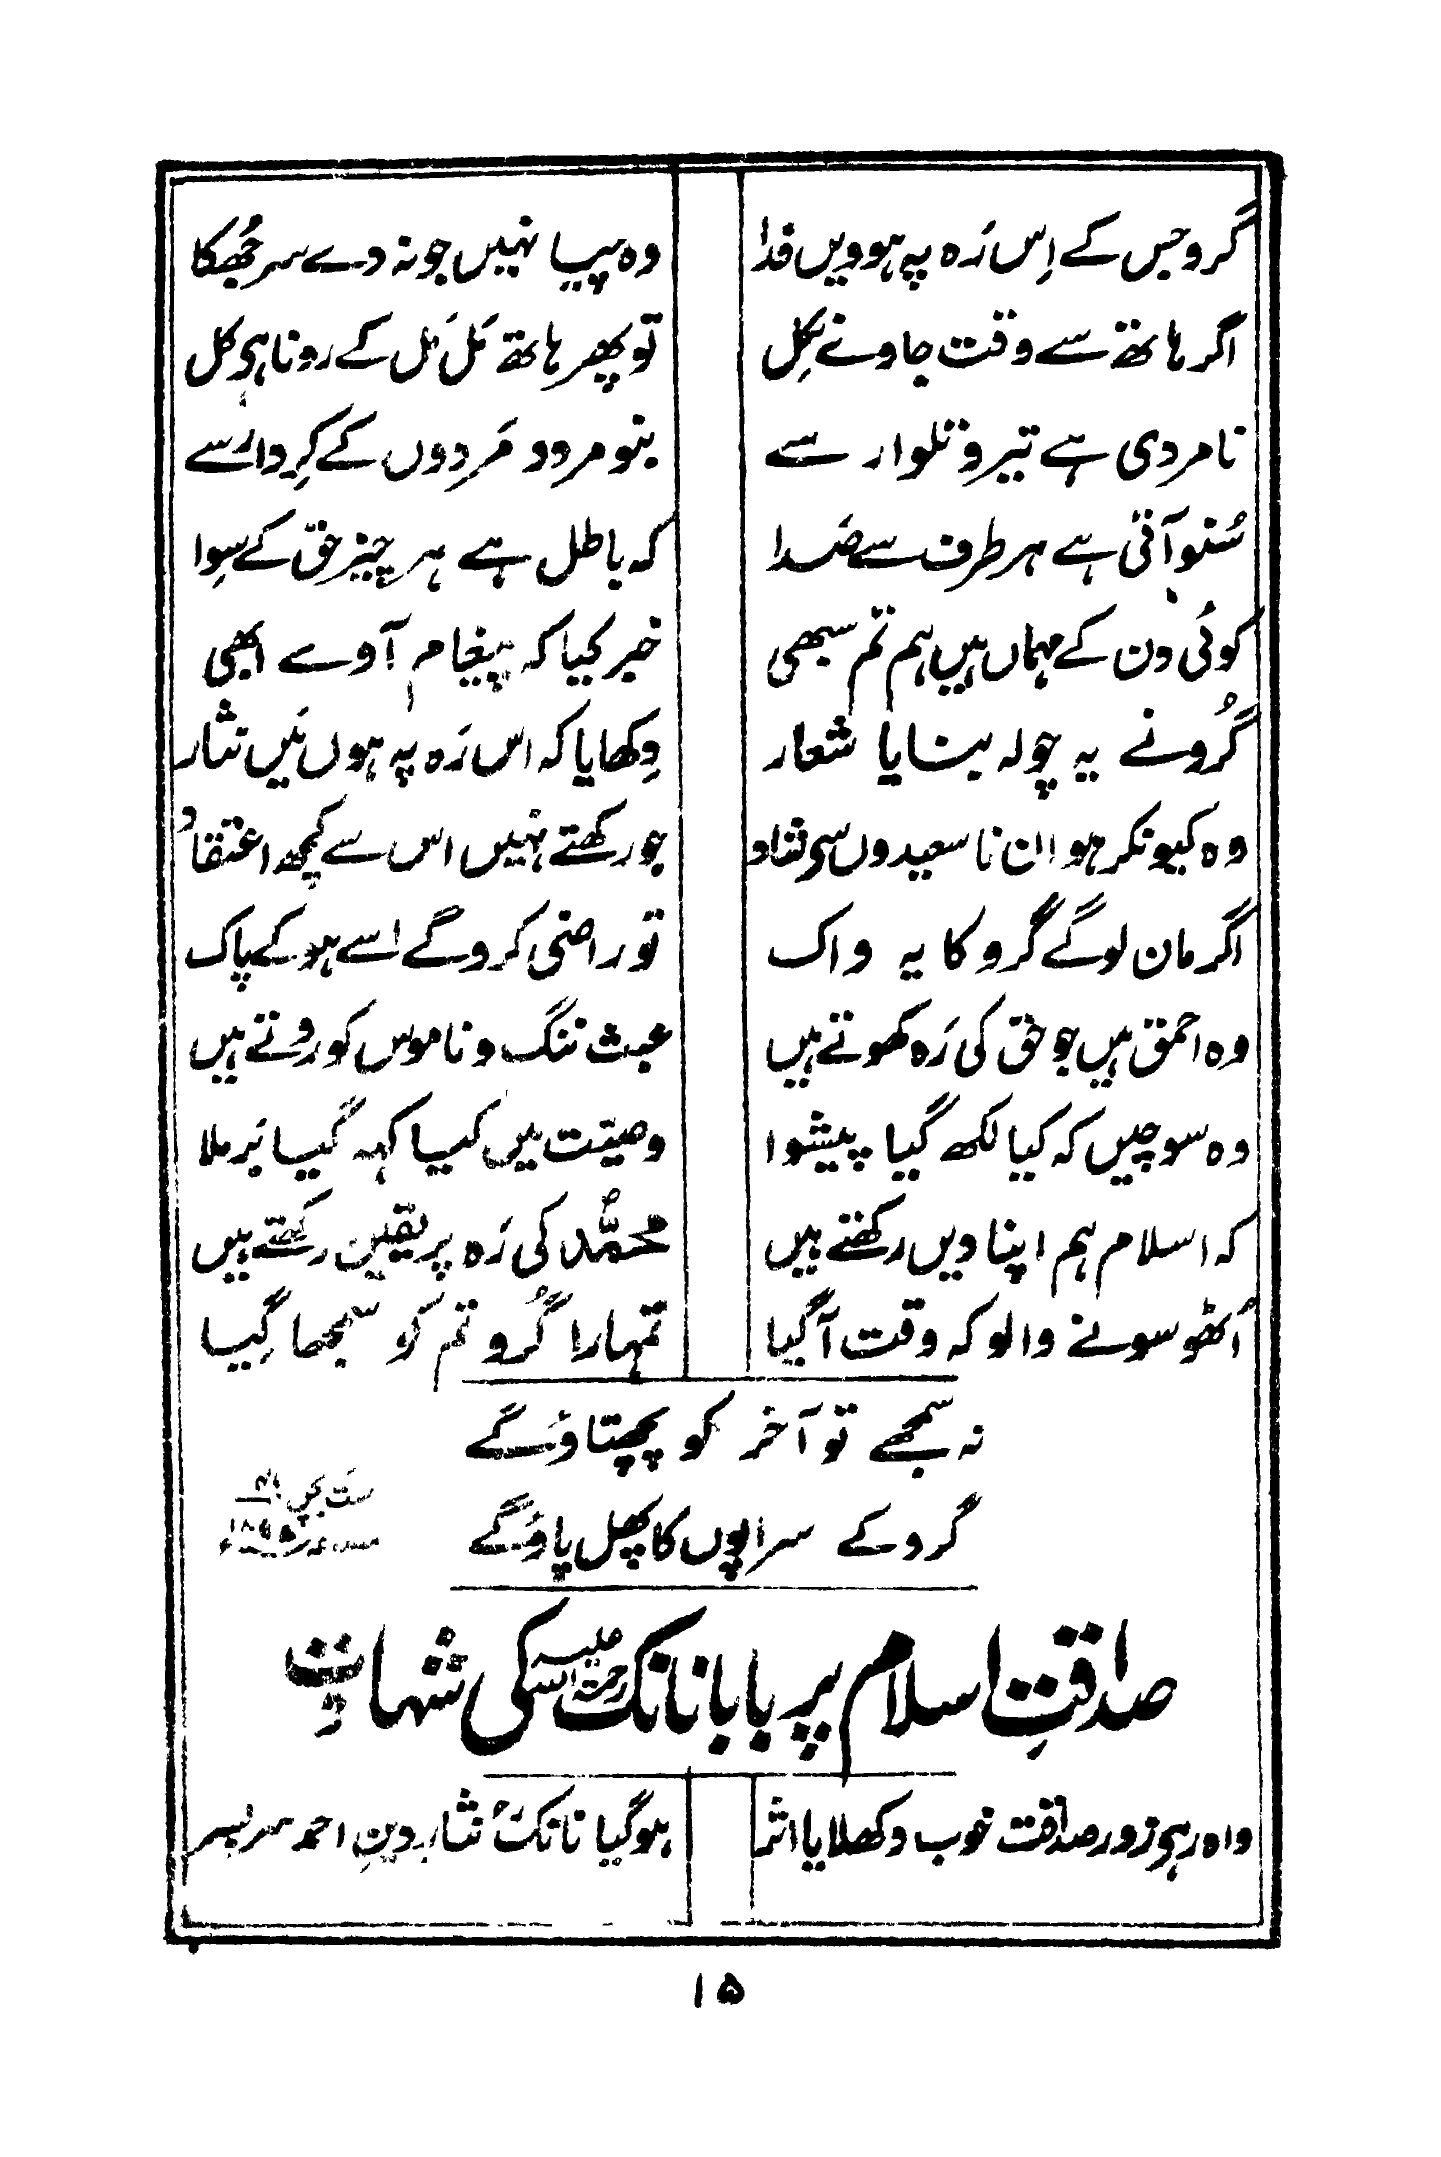 گرو جس کے اِس رَہ پہ ہوویں فدا وہ چیلا نہیں جو نہ دے سر جُھکا
اگر ہاتھ سے وقت جاوے نِکل تو پھر ہاتھ مَل مَل کے رونا ہی کل
نامردی ہے تیر و تلوار سے بنو مرد و مَردِوں کے کِردار سے
سُنو آتی ہے ہر طرف سے صَدا کہ باطل ہے ہر چیز حق کے سِوا
کوئی دن کے مہماں ہیں ہم تم سبھی خبر کیا کہ پیغام آوے ابھی
گُرو نے یہ چولہ بنایا شعار دِکھایا کہ اس رَہ پہ ہوں مَیں نثار
وہ کیونکر ہو ان ناسعیدوں سی شاد جو رکھتے نہیں اس سے کچھ اعتقاد
اگر مان لوگے گرو کا یہ واک تو راضی کروگے اسے ہو کے پاک
وہ احمق ہیں جو حق کی رَہ کھوتے ہیں عبث ننگ و ناموس کو روتے ہیں
وہ سوچیں کہ کیا لکھ گیا پیشوا وصیّت میں کیا کہہ گیا بَرملا
کہ اسلام ہم اپنا دیں رکھتے ہیں محمدؐ کی رَہ پر یقیں رکھتے ہیں
اُٹھو سونے والو کہ وقت آگیا تمہارا گُرو تم کو سمجھا گیا
نہ سمجھے تو آخر کو پچھتاؤگے
گرو کے سراپوں کا پھل پاؤگے
ست بچن
۱۸۹۵ء
صداقتِ اسلام پر بابا نانک رحمۃ اللہ علیہ کی شہادت
واہ رے زورِ صداقت خوب دکھلایا اثر ہوگیا نانکؒ نثارِ دینِ احمد سربسر
۱۵